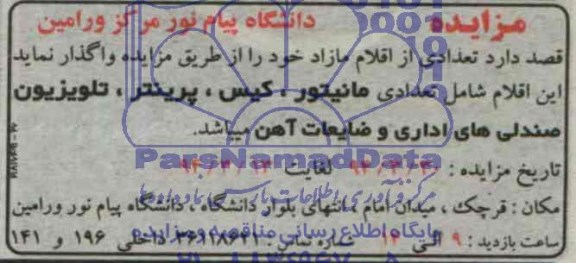 مزایده دانشگاه پیام نور مرکز ورامین
قصد دارد تعدادی از اقلام مازاد خود را از طریق مزایده واگذار نماید
این اقلام شامل تعدادی مانیتور ، کیس ، پرینتر ، تلویزیون
صندلی های اداری و ضایعات آهن میباشد.
ParsNamadData
تاریخ مزایده : لغایت
مکان : قرچک ، میدان امام ، انتهای بلوار دانشگاه ، دانشگاه پیام نور ورامین
ساعت بازدید : ۹ الی ۱۴ شماره تماس : داخلی ۱۹۶ و ۱۴۱